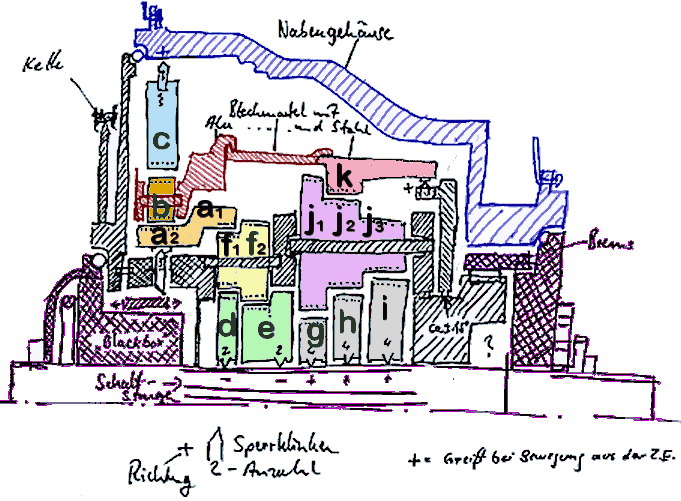 Nabengehäuse
Kette
Blechmantel mit
Alu ........ und Stahl
+
c
k
+
b
a₁
a₂
j₁ j₂ j₃
f₁ f₂
Brems
d e g h i
+
Blackbox
2 2 4 4 4
?
Schalt-
stange
- - + + +
+ Sperrklinken
Richtung 2-Anzahl
+ = Greift bei Bewegung aus der Z.E.